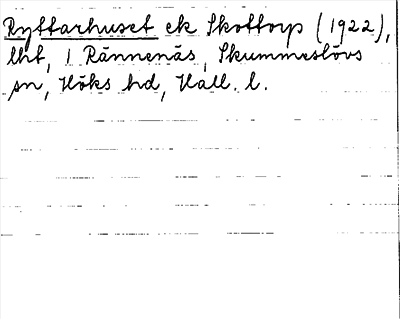 Ryttarhuset ek Skottorp (1922),
lht, 1 Rännenäs, Skummeslövs
sn, Höks hd, Hall. l.